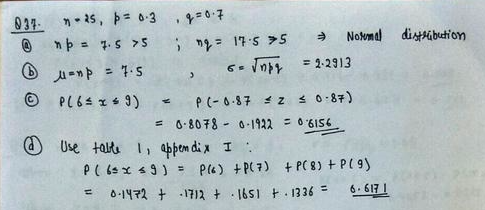 Q37. n=25, p=0.3, q=0.7
(a) np = 7.5 >5 ; nq = 17.5 >5 ⇒ Normal distribution
(b) μ=np = 7.5 , σ=√npq = 2.2913
(c) P(6≤x≤9) = P(-0.87 ≤ z ≤ 0.87)
= 0.8078 - 0.1922 = 0.6156
(d) Use table 1, appendix I :
P(6≤x≤9) = P(6) +P(7) +P(8)+P(9)
= 0.1472 + .1712 + .1651 + .1336 = 0.6171